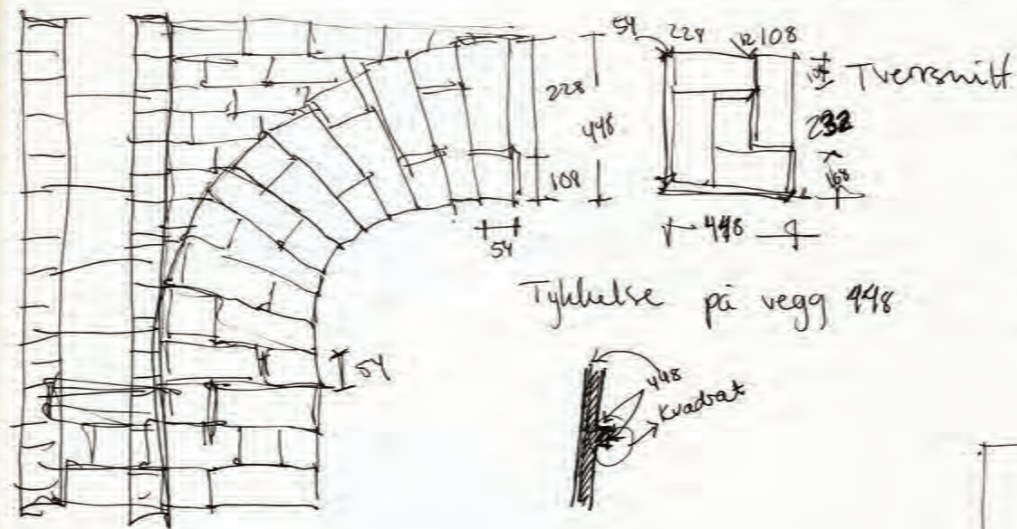 228
448
108
54
54
54 228 12 108
Tverrsnitt
232
168
448
Tykkelse på vegg 448
448
Kvadrat